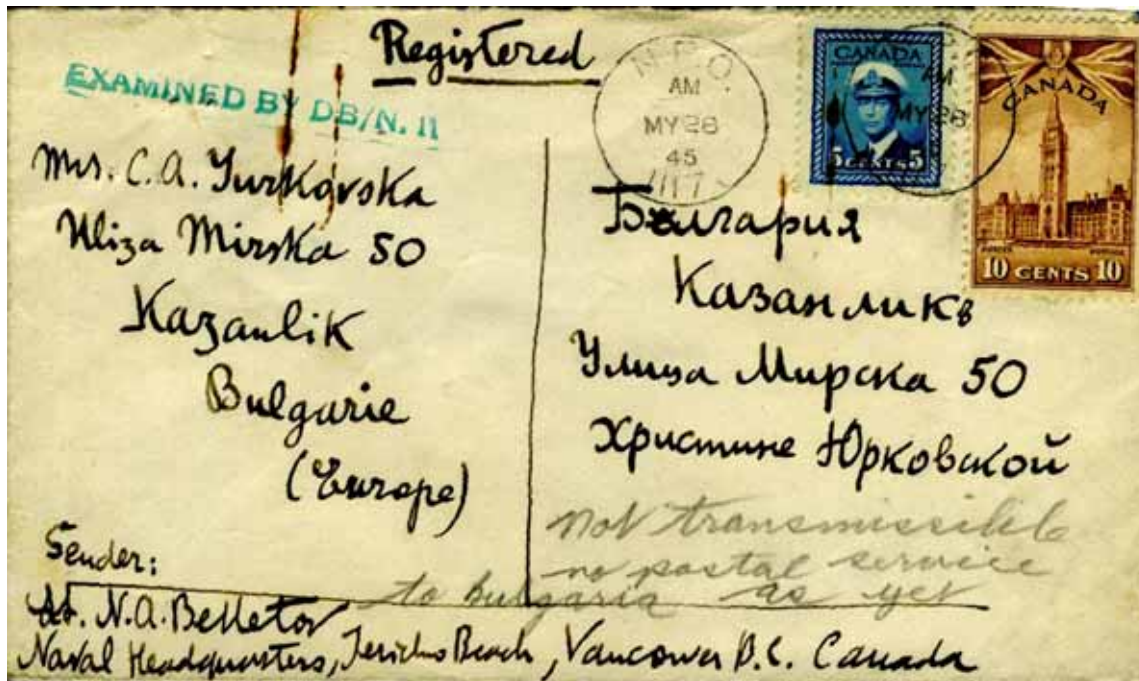 Registered
EXAMINED BY DB/N. 11
N.P.O.
AM
MY 28
45
1117
CANADA
5 CENTS 5
AM
MY 28
CANADA
10 CENTS 10
Mrs. C. A. Yurkovska
Uliza Mirska 50
Kazanlik
Bulgarie
(Europe)
България
Казанликъ
Улица Мирска 50
Христине Юрковской
not transmissible
no postal service
to bulgaria as yet
Sender:
N.A.
Naval Headquarters, Jericho Beach, Vancouver B.C. Canada